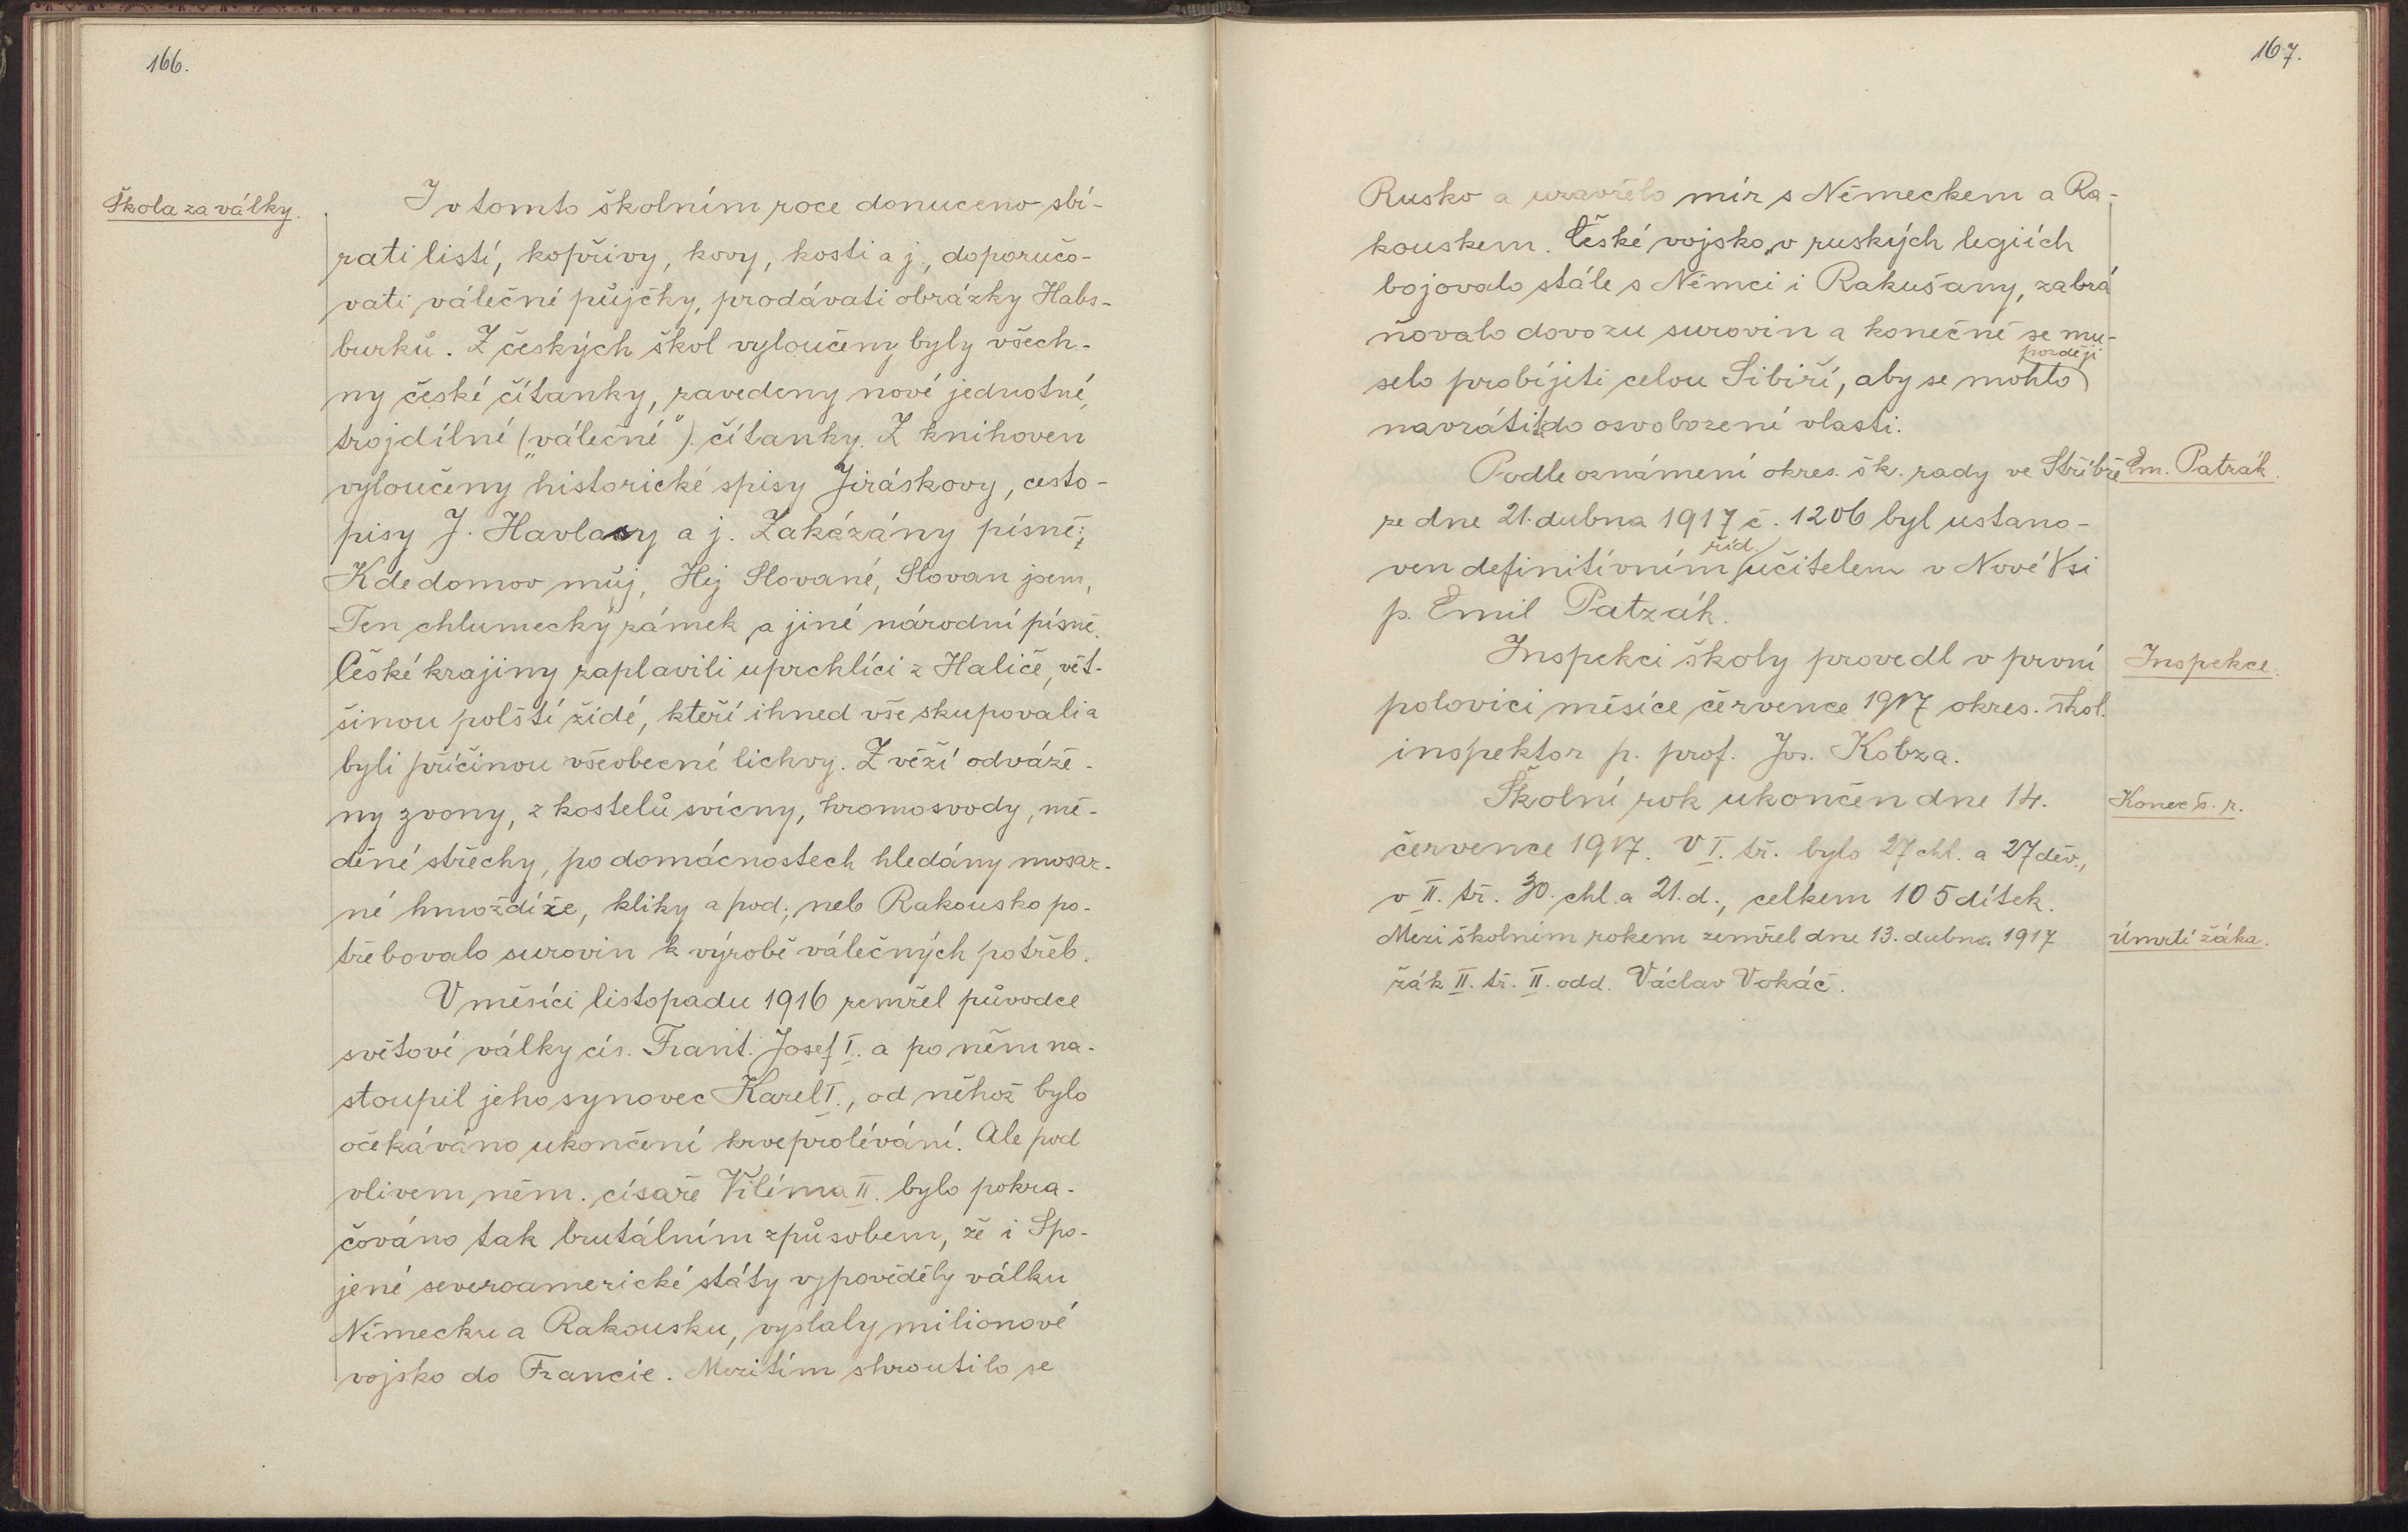 166.
Škola za války.
I v tomto školním roce donuceno sbí-
rati listí, kopřivy, kovy, kosti a j., doporučo-
vati válečné půjčky, prodávati obrázky Habs-
burků. Z českých škol vyloučeny byly všech-
ny české čítanky, zavedeny nové jednotné,
trojdílné („válečné") čítanky. Z knihoven
vyloučeny historické spisy Jiráskovy, cesto-
pisy J. Havlasy a j. Zakázány písně:
Kde domov můj, Hej Slované, Slovan jsem,
Ten chlumecký zámek a jiné národní písně.
České krajiny zaplavili uprchlíci z Haliče, vět-
šinou polští židé, kteří ihned vše skupovali a
byli příčinou všeobecné lichvy. Z věží odváže-
ny zvony, z kostelů svícny, hromosvody, mě-
děné střechy, po domácnostech hledány mosaz-
né hmoždíře, kliky a pod.; neb Rakousko po-
třebovalo surovin k výrobě válečných potřeb.
V měsíci listopadu 1916 zemřel původce
světové války cís. Frant. Josef I. a po něm na-
stoupil jeho synovec Karel I., od něhož bylo
očekáváno ukončení krveprolévání. Ale pod
vlivem něm. císaře Viléma II. bylo pokra-
čováno tak brutálním způsobem, že i Spo-
jené severoamerické státy vypověděly válku
Německu a Rakousku, vyslaly milionové
vojsko do Francie. Mezitím shroutilo se
167.
Rusko a uzavřelo mír s Německem a Ra-
kouskem. České vojsko v ruských legiích
bojovalo stále s Němci i Rakušany, zabrá
ňovalo dovozu surovin a konečně se mu-
selo probíjeti celou Sibiří, aby se mohlo později
navrátit do osvobozené vlasti.
Podle oznámení okres. šk. rady ve Stříbře
Em. Patzák.
ze dne 21. dubna 1917 č. 1206 byl ustano-
ven definitivním říd. učitelem v Nové Vsi
p. Emil Patzák.
Inspekci školy provedl v první
Inspekce.
polovici měsíce července 1917 okres. škol.
inspektor p. prof. Jos. Kobza.
Školní rok ukončen dne 14.
Konec š. r.
července 1917. V I. tř. bylo 27 chl. a 27 děv.,
v II. tř. 30. chl. a 21. d., celkem 105 dítek.
Mezi školním rokem zemřel dne 13. dubna 1917
Úmrtí žáka.
žák II. tř. II. odd. Václav Vokáč.